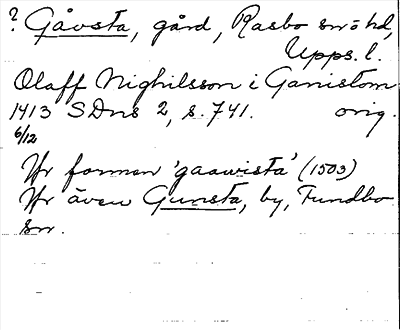 ? Gåvsta, gård, Rasbo sn o hd,
Upps. l.
Olaff Nighilsson i Ganistom
1413 SDns 2, s. 741. orig.
6/12
Jfr formen 'gaawista' (1503)
Jfr även Gunsta, by, Fundbo
sn.